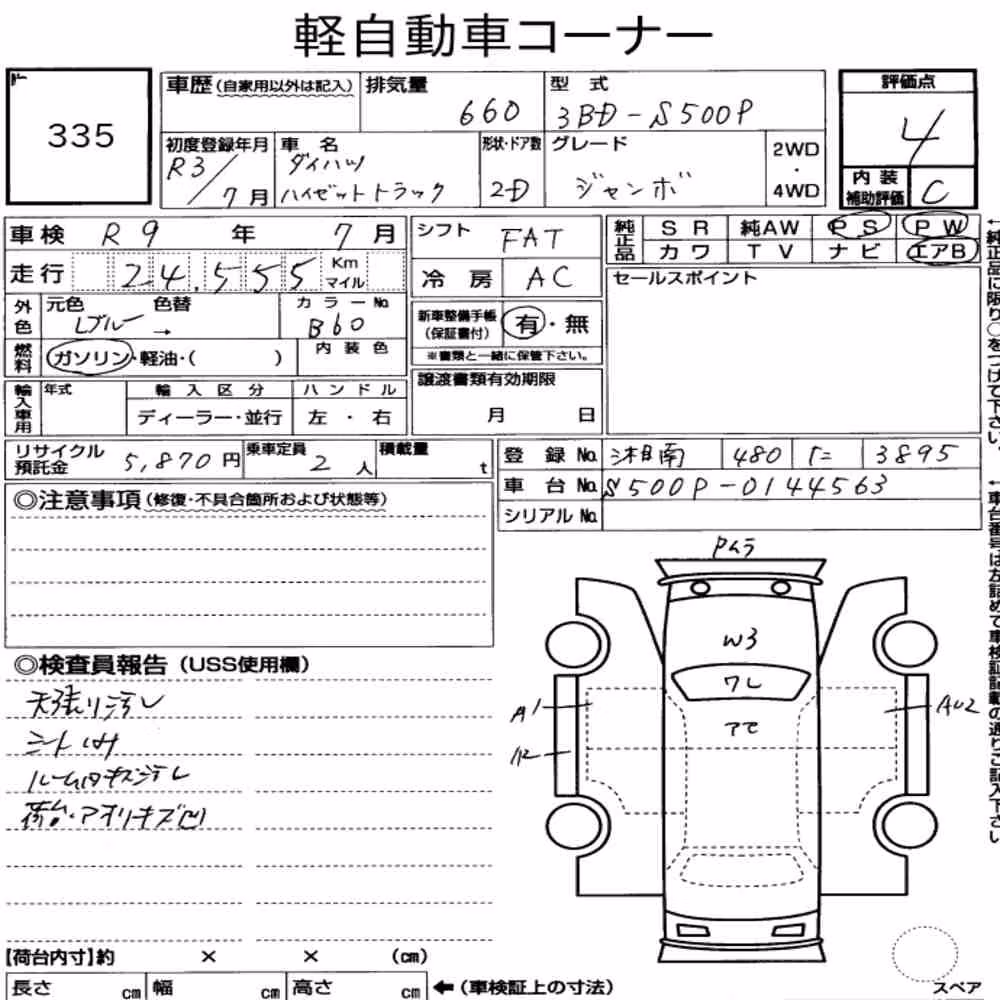 軽自動車コーナー
335
車歴(自家用以外は記入) 排気量 660 型式 3BD-S500P 評価点 4
初度登録年月 R3/7月 車名 ダイハツ ハイゼットトラック 形状・ドア数 2D グレード ジャンボ 2WD・4WD 内装補助評価 C
車検 R9年 7月 シフト FAT 純正品 SR 純AW PS PW
走行 24,555 Km マイル 冷房 AC カワ TV ナビ エアB
外色 元色 Lブルー → 色替 カラーNo. B60 新車整備手帳(保証書付) 有・無 セールスポイント
燃料 ガソリン・軽油・( ) 内装色 ※書類と一緒に保管下さい。
輸入車用 年式 輸入区分 ハンドル 譲渡書類有効期限
ディーラー・並行 左・右 月 日
リサイクル預託金 5,870円 乗車定員 2人 積載量 t 登録No. 湘南 480 に 3895
車台No. S500P-0144563
◎注意事項(修復・不具合箇所および状態等) シリアルNo.
◎検査員報告(USS使用欄)
天張リヨゴレ
シート
ルーム内キズヨゴレ
荷台・アオリキズ凹
Pムラ
W3
ワレ
アセ
A1
AU2
【荷台内寸】約 × × (cm)
長さ cm 幅 cm 高さ cm ←(車検証上の寸法)
スペア
←純正品に限り○をつけて下さい。
←車台番号は左詰めで車検証記載の通りご記入下さい。